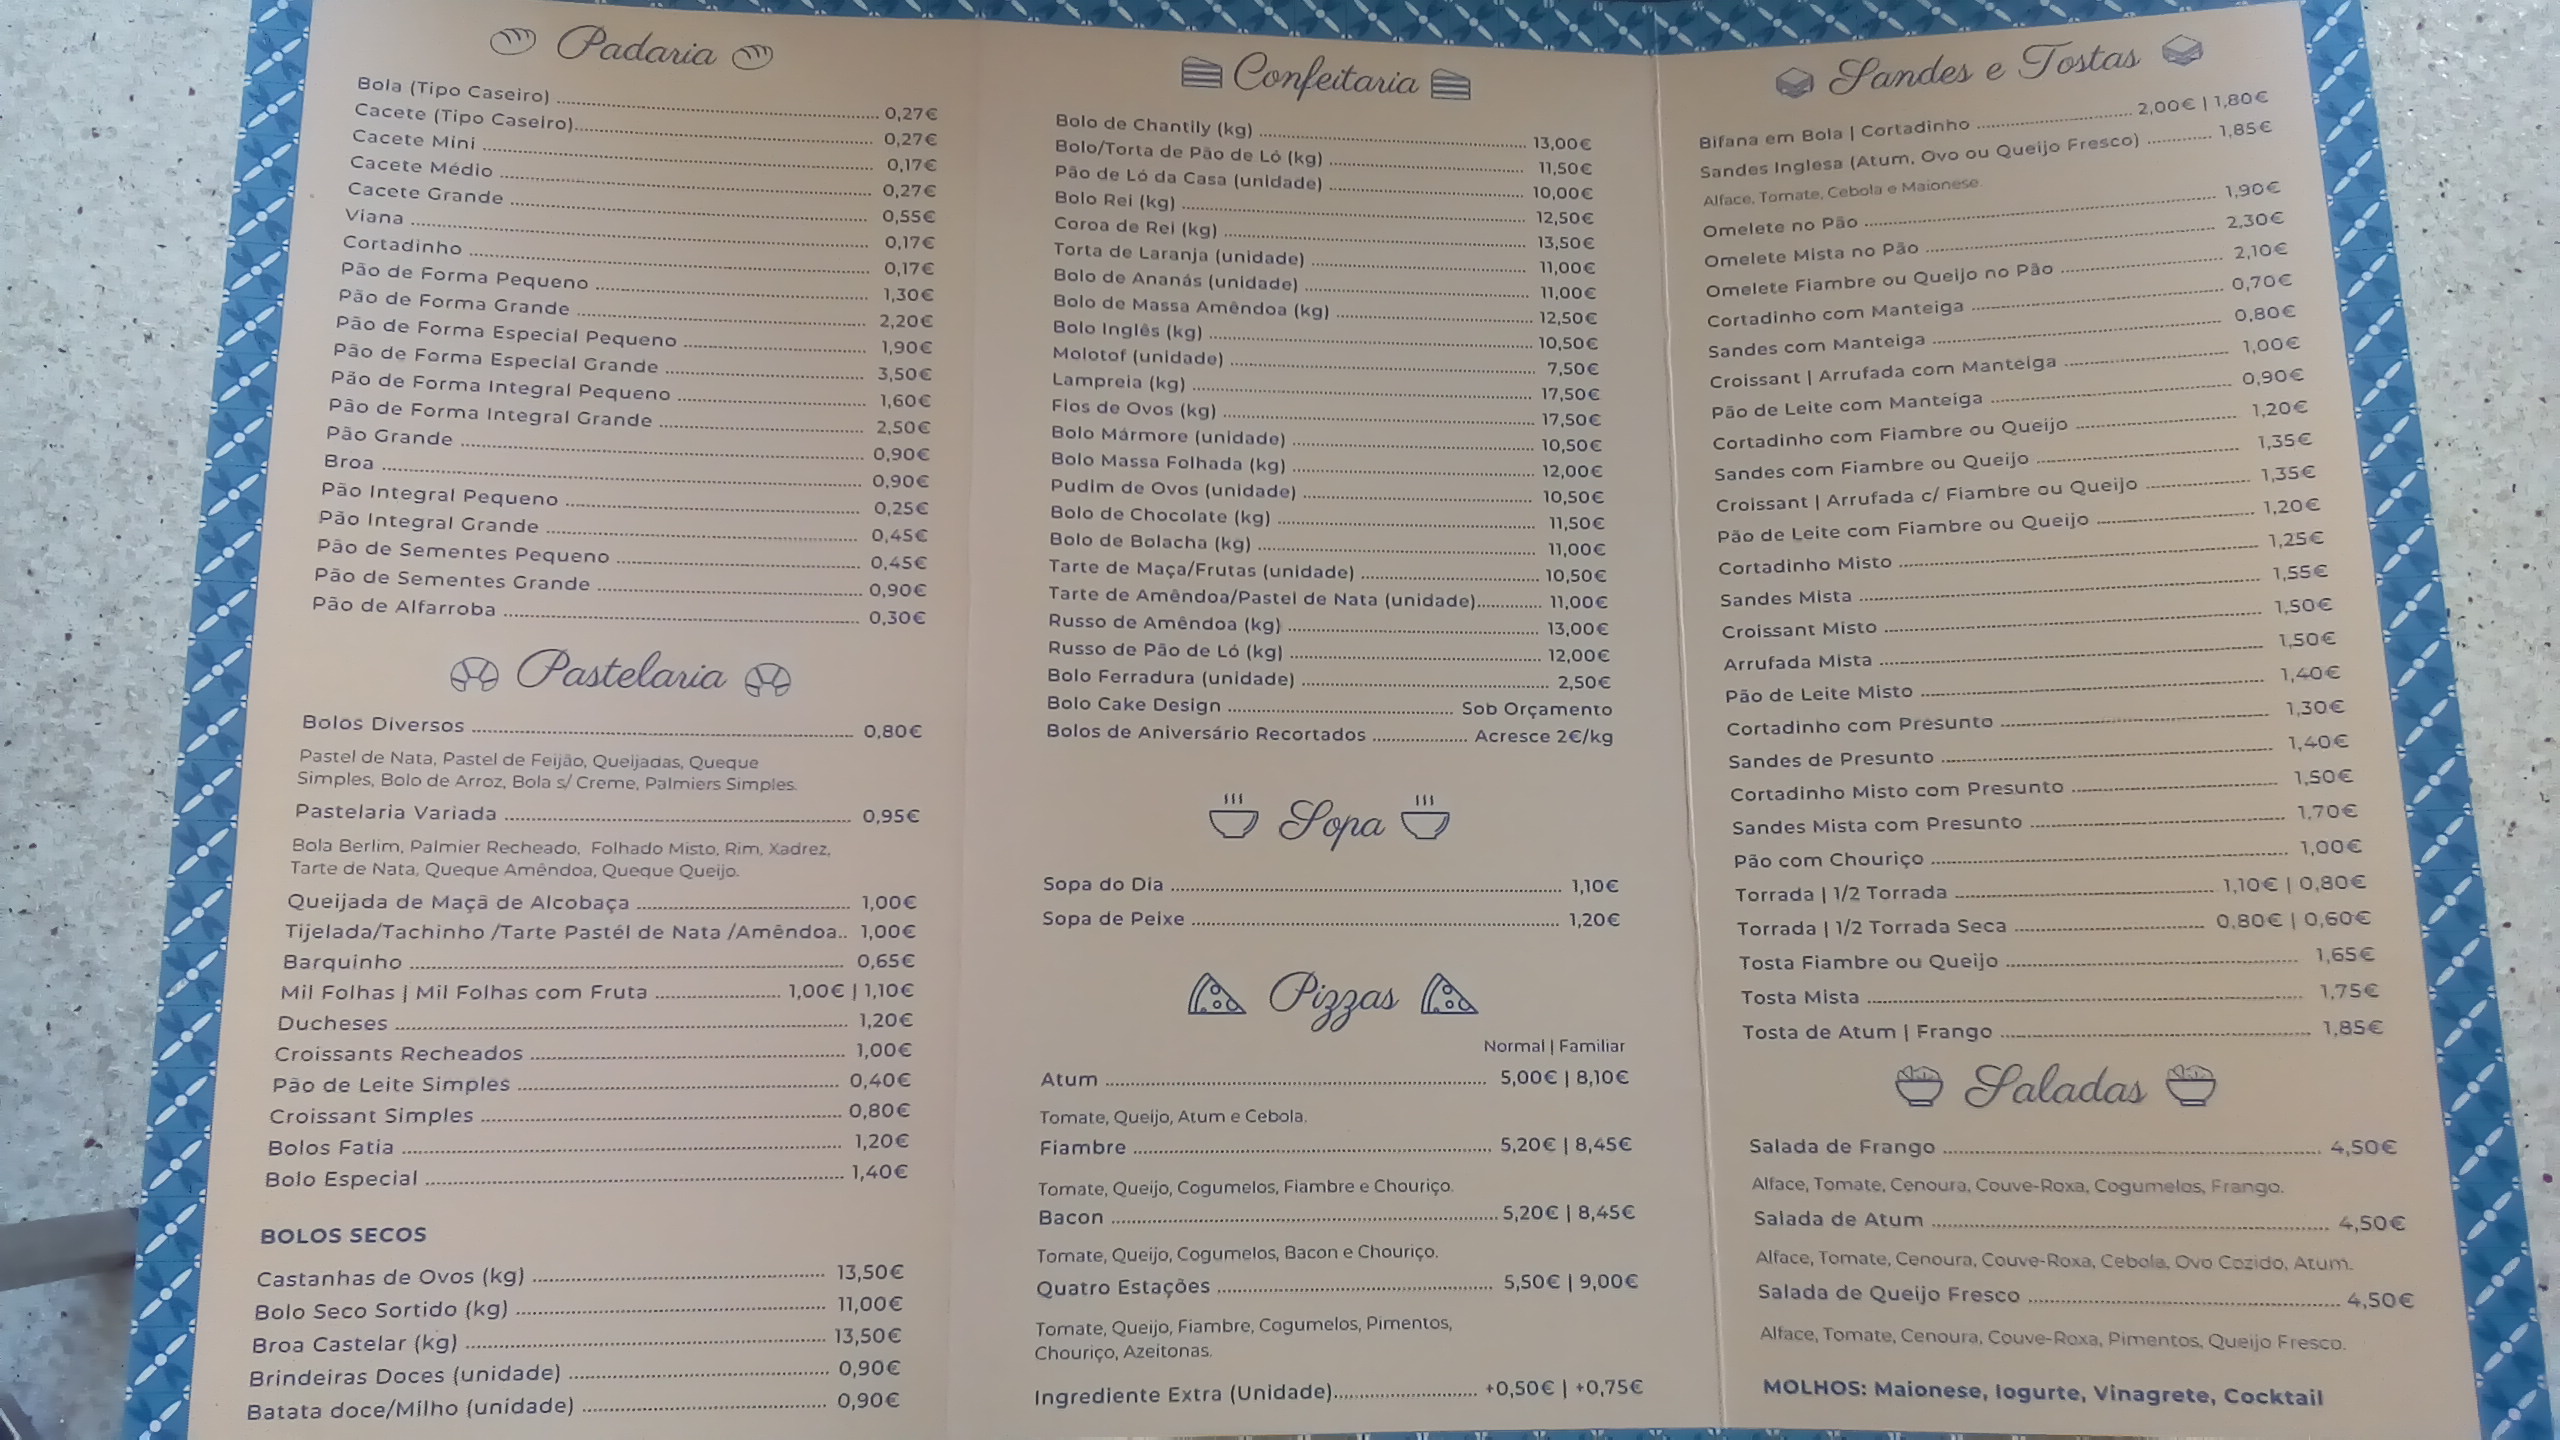 Padaria
Bola (Tipo Caseiro) 0,27€
Cacete (Tipo Caseiro) 0,27€
Cacete Mini 0,17€
Cacete Médio 0,27€
Cacete Grande 0,55€
Viana 0,17€
Cortadinho 0,17€
Pão de Forma Pequeno 1,30€
Pão de Forma Grande 2,20€
Pão de Forma Especial Pequeno 1,90€
Pão de Forma Especial Grande 3,50€
Pão de Forma Integral Pequeno 1,60€
Pão de Forma Integral Grande 2,50€
Pão Grande 0,90€
Broa 0,90€
Pão Integral Pequeno 0,25€
Pão Integral Grande 0,45€
Pão de Sementes Pequeno 0,45€
Pão de Sementes Grande 0,90€
Pão de Alfarroba 0,30€
Pastelaria
Bolos Diversos 0,80€
Pastel de Nata, Pastel de Feijão, Queijadas, Queque
Simples, Bolo de Arroz, Bola s/ Creme, Palmiers Simples.
Pastelaria Variada 0,95€
Bola Berlim, Palmier Recheado, Folhado Misto, Rim, Xadrez,
Tarte de Nata, Queque Amêndoa, Queque Queijo.
Queijada de Maçã de Alcobaça 1,00€
Tijelada/Tachinho /Tarte Pastél de Nata /Amêndoa.. 1,00€
Barquinho 0,65€
Mil Folhas | Mil Folhas com Fruta 1,00€ | 1,10€
Ducheses 1,20€
Croissants Recheados 1,00€
Pão de Leite Simples 0,40€
Croissant Simples 0,80€
Bolos Fatia 1,20€
Bolo Especial 1,40€
BOLOS SECOS
Castanhas de Ovos (kg) 13,50€
Bolo Seco Sortido (kg) 11,00€
Broa Castelar (kg) 13,50€
Brindeiras Doces (unidade) 0,90€
Batata doce/Milho (unidade) 0,90€
Confeitaria
Bolo de Chantily (kg) 13,00€
Bolo/Torta de Pão de Ló (kg) 11,50€
Pão de Ló da Casa (unidade) 10,00€
Bolo Rei (kg) 12,50€
Coroa de Rei (kg) 13,50€
Torta de Laranja (unidade) 11,00€
Bolo de Ananás (unidade) 11,00€
Bolo de Massa Amêndoa (kg) 12,50€
Bolo Inglês (kg) 10,50€
Molotof (unidade) 7,50€
Lampreia (kg) 17,50€
Fios de Ovos (kg) 17,50€
Bolo Mármore (unidade) 10,50€
Bolo Massa Folhada (kg) 12,00€
Pudim de Ovos (unidade) 10,50€
Bolo de Chocolate (kg) 11,50€
Bolo de Bolacha (kg) 11,00€
Tarte de Maça/Frutas (unidade) 10,50€
Tarte de Amêndoa/Pastel de Nata (unidade) 11,00€
Russo de Amêndoa (kg) 13,00€
Russo de Pão de Ló (kg) 12,00€
Bolo Ferradura (unidade) 2,50€
Bolo Cake Design Sob Orçamento
Bolos de Aniversário Recortados Acresce 2€/kg
Sopa
Sopa do Dia 1,10€
Sopa de Peixe 1,20€
Pizzas
Normal | Familiar
Atum 5,00€ | 8,10€
Tomate, Queijo, Atum e Cebola.
Fiambre 5,20€ | 8,45€
Tomate, Queijo, Cogumelos, Fiambre e Chouriço.
Bacon 5,20€ | 8,45€
Tomate, Queijo, Cogumelos, Bacon e Chouriço.
Quatro Estações 5,50€ | 9,00€
Tomate, Queijo, Fiambre, Cogumelos, Pimentos,
Chouriço, Azeitonas.
Ingrediente Extra (Unidade) +0,50€ | +0,75€
Sandes e Tostas
Bifana em Bola | Cortadinho 2,00€ | 1,80€
Sandes Inglesa (Atum, Ovo ou Queijo Fresco) 1,85€
Alface, Tomate, Cebola e Maionese.
Omelete no Pão 1,90€
Omelete Mista no Pão 2,30€
Omelete Fiambre ou Queijo no Pão 2,10€
Cortadinho com Manteiga 0,70€
Sandes com Manteiga 0,80€
Croissant | Arrufada com Manteiga 1,00€
Pão de Leite com Manteiga 0,90€
Cortadinho com Fiambre ou Queijo 1,20€
Sandes com Fiambre ou Queijo 1,35€
Croissant | Arrufada c/ Fiambre ou Queijo 1,35€
Pão de Leite com Fiambre ou Queijo 1,20€
Cortadinho Misto 1,25€
Sandes Mista 1,55€
Croissant Misto 1,50€
Arrufada Mista 1,50€
Pão de Leite Misto 1,40€
Cortadinho com Presunto 1,30€
Sandes de Presunto 1,40€
Cortadinho Misto com Presunto 1,50€
Sandes Mista com Presunto 1,70€
Pão com Chouriço 1,00€
Torrada | 1/2 Torrada 1,10€ | 0,80€
Torrada | 1/2 Torrada Seca 0,80€ | 0,60€
Tosta Fiambre ou Queijo 1,65€
Tosta Mista 1,75€
Tosta de Atum | Frango 1,85€
Saladas
Salada de Frango 4,50€
Alface, Tomate, Cenoura, Couve-Roxa, Cogumelos, Frango.
Salada de Atum 4,50€
Alface, Tomate, Cenoura, Couve-Roxa, Cebola, Ovo Cozido, Atum.
Salada de Queijo Fresco 4,50€
Alface, Tomate, Cenoura, Couve-Roxa, Pimentos, Queijo Fresco.
MOLHOS: Maionese, Iogurte, Vinagrete, Cocktail